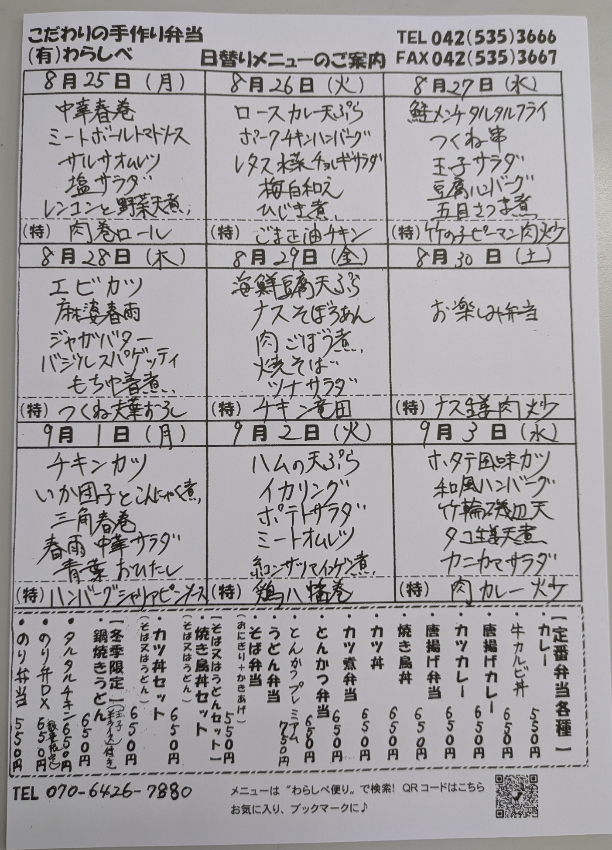 こだわりの手作り弁当
(有)わらしべ
日替りメニューのご案内
TEL 042(535)3666
FAX 042(535)3667
8月25日(月)
中華春巻
ミートボールトマトソース
サルサオムレツ
塩サラダ
レンコンと野菜天煮
(特) 肉巻ロール
8月26日(火)
ロースカレー天ぷら
ポークチキンハンバーグ
レタス水菜チョレギサラダ
梅白和え
ひじき煮
(特) ごま正油チキン
8月27日(水)
鮭メンチタルタルフライ
つくね串
玉子サラダ
豆腐ハンバーグ
五目さつま煮
(特) 竹の子ピーマン肉炒
8月28日(木)
エビカツ
麻婆春雨
ジャガバター
バジルスパゲッティ
もち巾着煮
(特) つくね大葉おろし
8月29日(金)
海鮮豆腐天ぷら
ナスそぼろあん
肉ごぼう煮
焼そば
ツナサラダ
(特) チキン竜田
8月30日(土)
お楽しみ弁当
(特) ナス生姜肉炒
9月1日(月)
チキンカツ
いか団子とこんにゃく煮
三角春巻
春雨中華サラダ
青菜おひたし
(特) ハンバーグシャリアピンソース
9月2日(火)
ハムの天ぷら
イカリング
ポテトサラダ
ミートオムレツ
(特) 鶏八幡巻
9月3日(水)
ホタテ風味カツ
和風ハンバーグ
竹輪磯辺天
タコ生姜天煮
カニカマサラダ
(特) 肉カレー炒
【定番弁当各種】
・カレー 550円
・牛カルビ丼 650円
・唐揚げカレー 650円
・カツカレー 650円
・唐揚げ弁当 650円
・焼き鳥丼 650円
・カツ丼 650円
・カツ煮弁当 650円
・とんかつ弁当 650円
・とんかつプレミアム 750円
・うどん弁当
・そば弁当
(おにぎり+かきあげ) 550円
【そば又はうどんセット】
・焼き鳥丼セット
(そば又はうどん) 650円
・カツ丼セット
(そば又はうどん) 650円
【冬季限定】
・鍋焼きうどん 650円
・タルタルチキン 650円
・のり弁DX 650円
・のり弁当 550円
TEL 070-6426-7880
メニューは "わらしべ便り" で検索! QRコードはこちら
お気に入り、ブックマークに♪